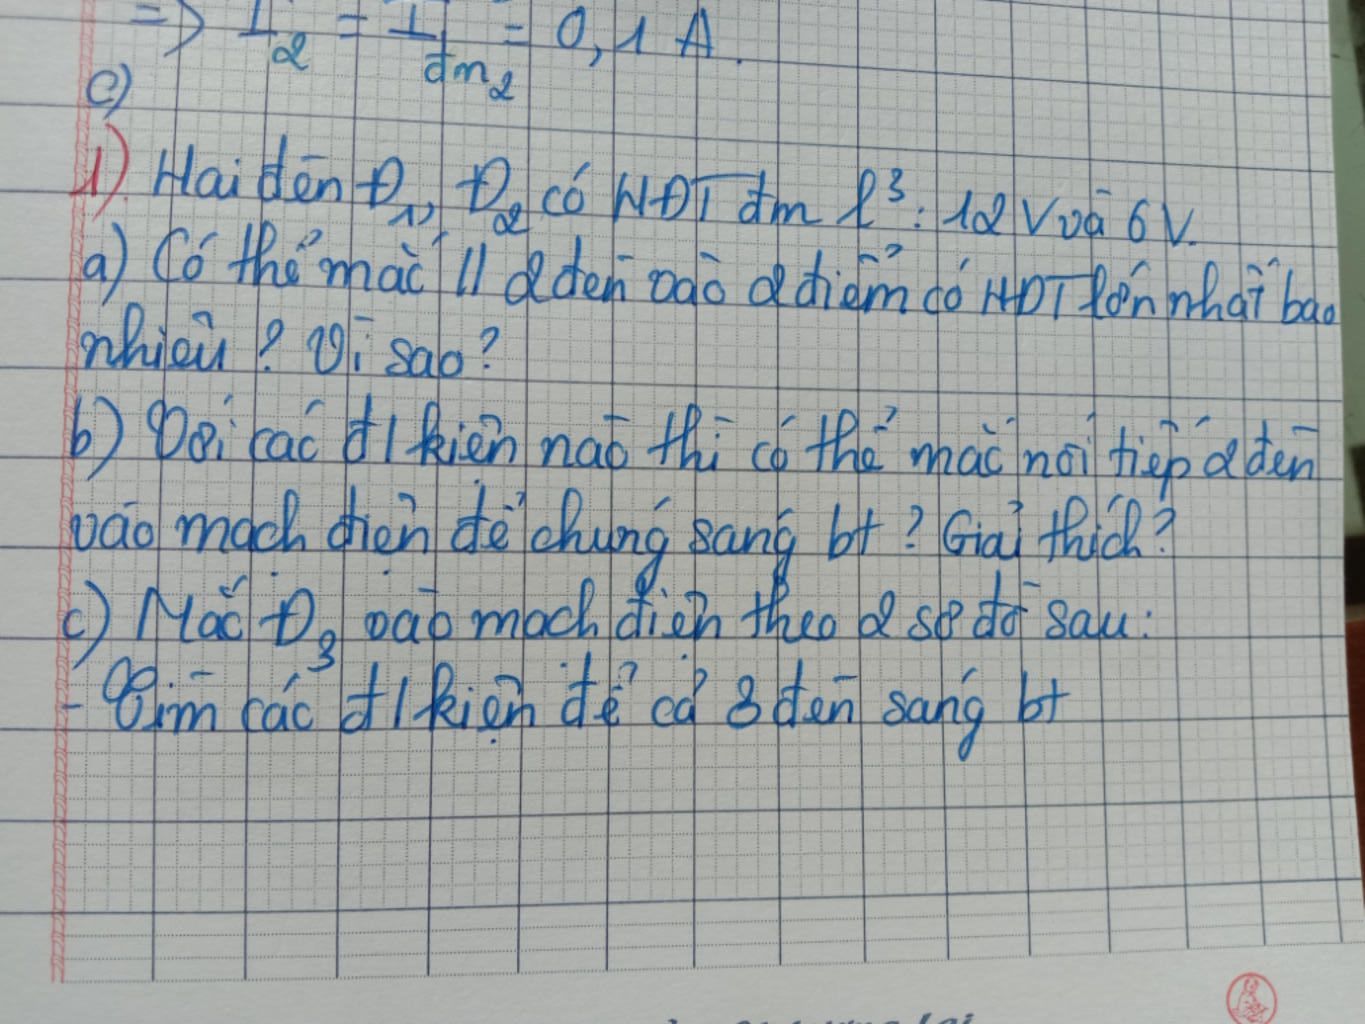 => I₂ = I đm₂ = 0,1 A.
c)
1) Hai đèn Đ₁, Đ₂ có HĐT đm l³: 12V và 6V.
a) Có thể mắc // 2 đèn vào 2 điểm có HĐT lớn nhất bao
nhiêu? Vì sao?
b) Với các đ/kiện nào thì có thể mắc nối tiếp 2 đèn
vào mạch điện để chúng sáng bt? Giải thích?
c) Mắc Đ₃ vào mạch điện theo 2 sơ đồ sau:
- Tìm các đ/kiện để cả 3 đèn sáng bt